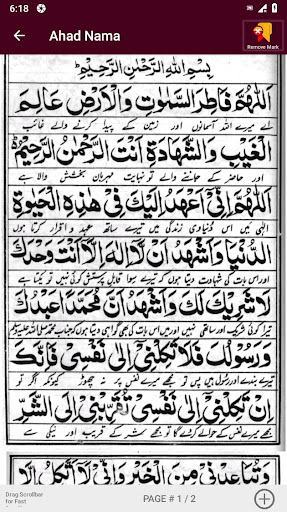 6:18
Ahad Nama
Remove Mark
بِسْمِ اللهِ الرَّحْمٰنِ الرَّحِيْمِ
اَللّٰهُمَّ فَاطِرَ السَّمٰوٰتِ وَالْاَرْضِ عَالِمَ
اے میرے اللہ آسمانوں اور زمین کے پیدا کرنے والے غائب
الْغَيْبِ وَالشَّهَادَةِ اَنْتَ الرَّحْمٰنُ الرَّحِيْمُ
اور حاضر کے جاننے والے تو نہایت مہربان بخشش والا ہے
اَللّٰهُمَّ اِنِّيْ اَعْهَدُ اِلَيْكَ فِيْ هٰذِهِ الْحَيٰوةِ
الہی میں اس دنیاوی زندگی میں تیرے ساتھ عہد و اقرار کرتا
الدُّنْيَا وَاَشْهَدُ اَنْ لَّا اِلٰهَ اِلَّا اَنْتَ وَحْدَكَ
ہوں اور اس بات کی شہادت دیتا ہوں کہ تیرے سوا کوئی قابل پرستش نہیں تو یکتا ہے
لَا شَرِيْكَ لَكَ وَاَشْهَدُ اَنَّ مُحَمَّدًا عَبْدُكَ
تیرا کوئی شریک اور ساتھی نہیں اور میں اس بات کی بھی گواہی دیتا ہوں کہ جناب محمد صلی اللہ علیہ وسلم
وَرَسُوْلُكَ فَلَا تَكِلْنِيْ اِلٰى نَفْسِيْ فَاِنَّكَ
تیرے بندے اور رسول ہیں پس تو مجھے میرے نفس پر نہ چھوڑ کیونکہ اگر تو
اِنْ تَكِلْنِيْ اِلٰى نَفْسِيْ تُقَرِّبْنِيْ اِلَى الشَّرِّ
مجھے میرے نفس کے حوالے کرے گا تو مجھے شر کے قریب اور نیکی سے
وَتُبَاعِدْنِيْ مِنَ الْخَيْرِ وَاِنِّيْ لَا اَتَّكِلُ اِلَّا
Drag Scrollbar
for Fast
PAGE # 1 / 2